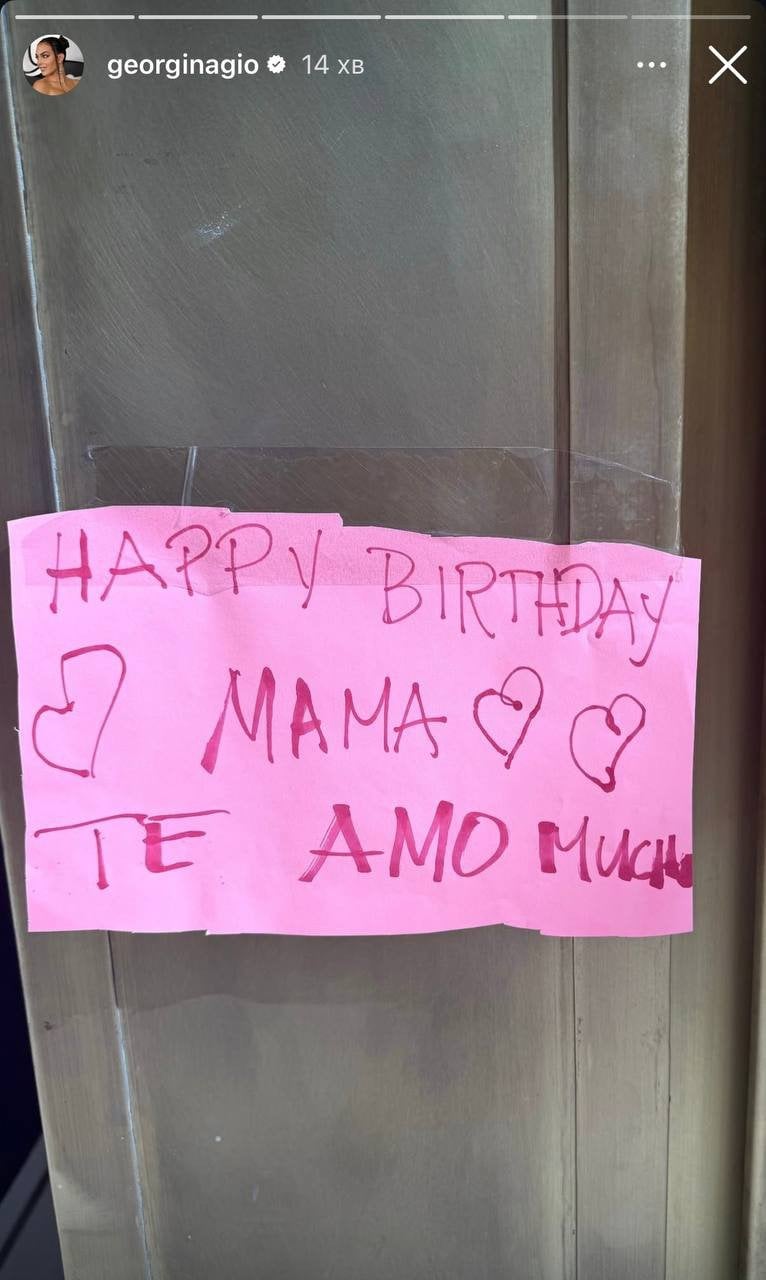 georginagio 14 хв
HAPPY BIRTHDAY
MAMA
TE AMO MUCHO